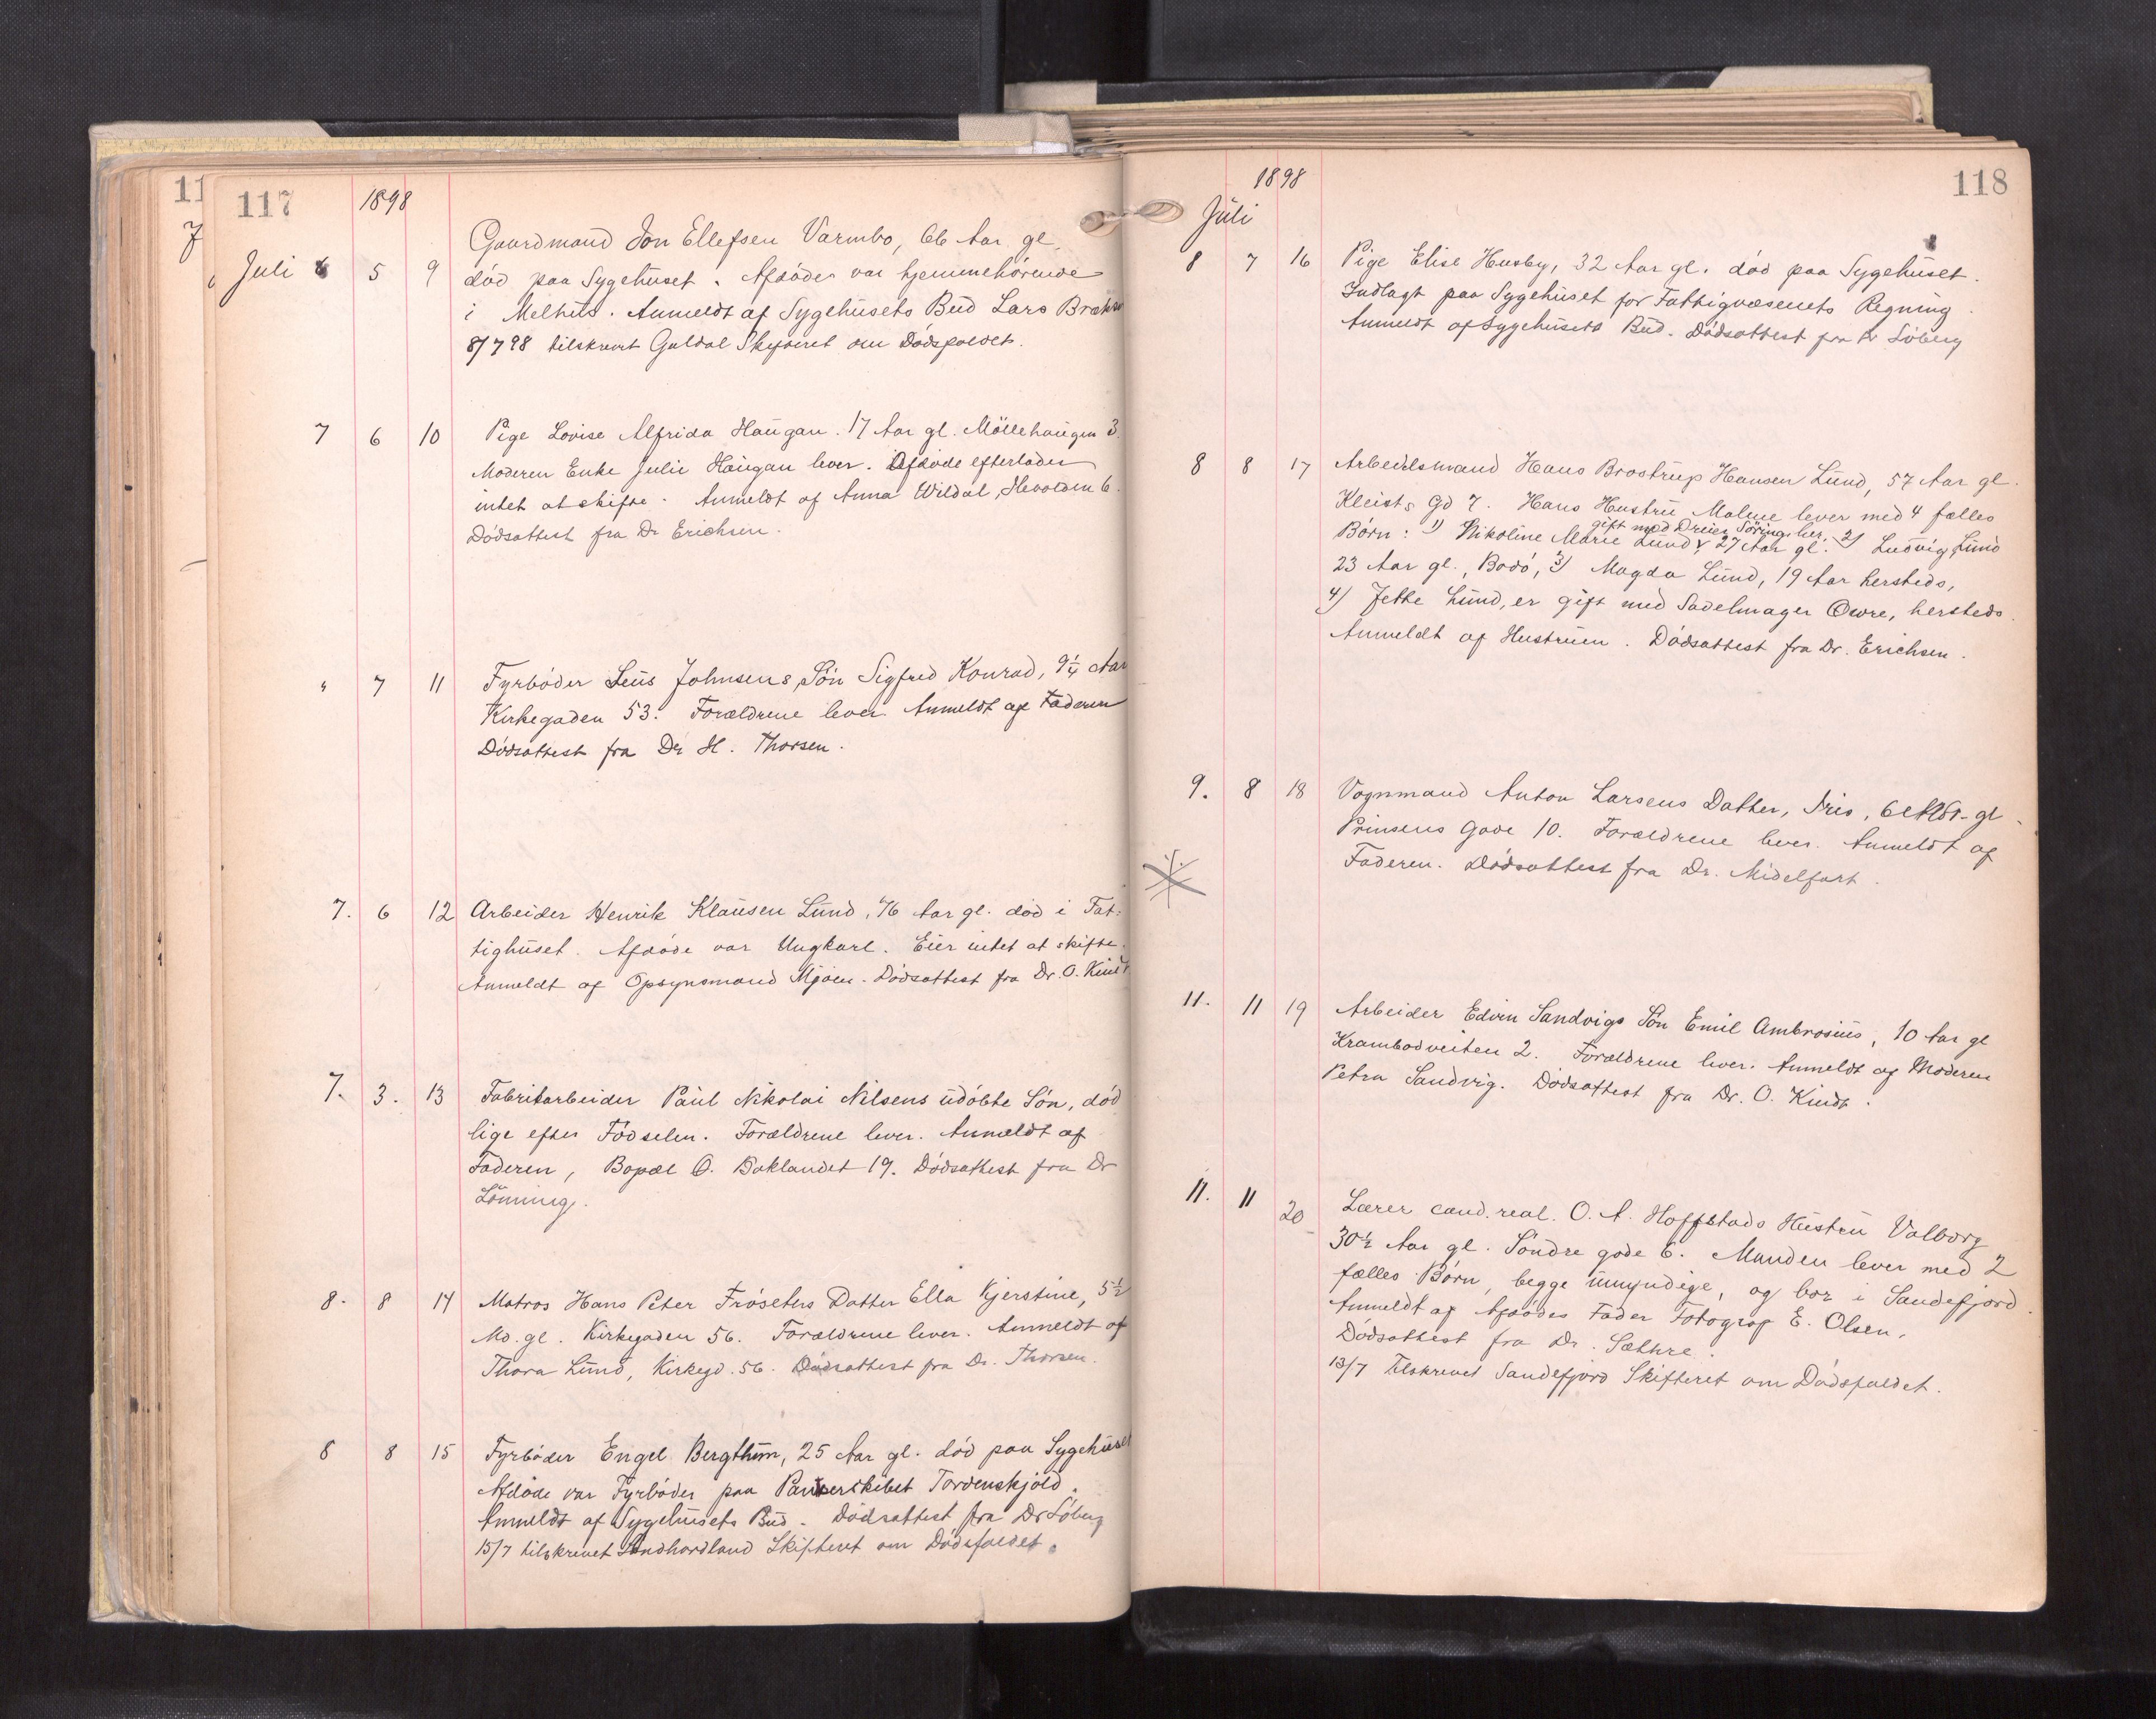 117
1898
Gaardmand Jon Ellefsen Varmbo, 66 Aar gl.
Juli 6 5 9 död paa Sygehuset. Afdöde var hjemmehörende
i Melhus. Anmeldt af Sygehusets Bud Lars
8/7 98 tilskrevet Guldal Skifteret om Dödsfaldet.
7 6 10 Pige Lovise Alfrida Haugan. 17 Aar gl. Möllehaugen 3.
Moderen Enke Julie Haugan lever. Afdöde efterlader
intet at skifte. Anmeldt af Anna Wildal, Hevolden 6.
Dödsattest fra Dr Erichsen.
" 7 11 Fyrböder Johnsens Sön Sigfred Konrad, 9 1/4 Aar
Kirkegaden 53. Forældrene lever. Anmeldt af Faderen
Dödsattest fra Dr H. Thorsen.
7. 6 12 Arbeider Henrik Klausen Lund, 76 Aar gl. död i Fat-
tighuset. Afdöde var Ungkarl. Eier intet at skifte.
Anmeldt af Opsynsmand Mjöen. Dödsattest fra Dr. O. Kindt
7. 3. 13 Fabrikarbeider Paul Nikolai Nilsens udöbte Sön, död
lige efter Födselen. Forældrene lever. Anmeldt af
Faderen, Bopæl Ö. Baklandet 19. Dödsattest fra Dr
Lönning.
8. 8 14 Matros Hans Peter Fröseters Datter Ella Kjerstine, 5 1/2
Md. gl. Kirkegaden 56. Forældrene lever. Anmeldt af
Thora Lund, Kirkegd. 56. Dödsattest fra Dr. Thorsen.
8 8 15 Fyrböder Engel Bergthun, 25 Aar gl. död paa Sygehuset
Afdöde var Fyrböder paa Panserskibet Tordenskjold.
Anmeldt af Sygehusets Bud. Dödsattest fra Dr Löberg
15/7 tilskrevet Söndhordland Skifteret om Dödsfaldet.
118
1898
Juli
8 7 16 Pige Elise Husby, 32 Aar gl. död paa Sygehuset.
Indlagt paa Sygehuset for Fattigvæsenets Regning.
Anmeldt af Sygehusets Bud. Dödsattest fra Dr Löberg
8 8 17 Arbeidsmand Hans Brostrup Hansen Lund, 57 Aar gl.
Kleists Gd 7. Hans Hustru Malene lever med 4 fælles
gift med Dreier Söring her,
Börn: 1) Nikoline Marie Lund, 27 Aar gl. 2) Ludvig Lund
23 Aar gl., Bodö, 3) Magda Lund, 19 Aar hersteds,
4) Jette Lund, er gift med Sadelmager Owre, hersteds.
Anmeldt af Hustruen. Dödsattest fra Dr. Erichsen.
9. 8 18 Vognmand Anton Larsens Datter, Iris, 6 Md. gl.
Prinsens Gade 10. Forældrene lever. Anmeldt af
Faderen. Dödsattest fra Dr. Midelfart.
11. 11 19 Arbeider Edvin Sandvigs Sön Emil Ambrosius, 10 Aar gl
Krambodveiten 2. Forældrene lever. Anmeldt af Moderen
Petra Sandvig. Dödsattest fra Dr. O. Kindt.
11. 11 20 Lærer cand. real. O. A. Hoffstads Hustru Valborg
30 1/2 Aar gl. Söndre gade 6. Manden lever med 2
fælles Börn, begge umyndige, og bor i Sandefjord.
Anmeldt af Afdödes Fader Fotograf E. Olsen.
Dödsattest fra Dr. Sæthre.
13/7 Tilskrevet Sandefjord Skifteret om Dödsfaldet.